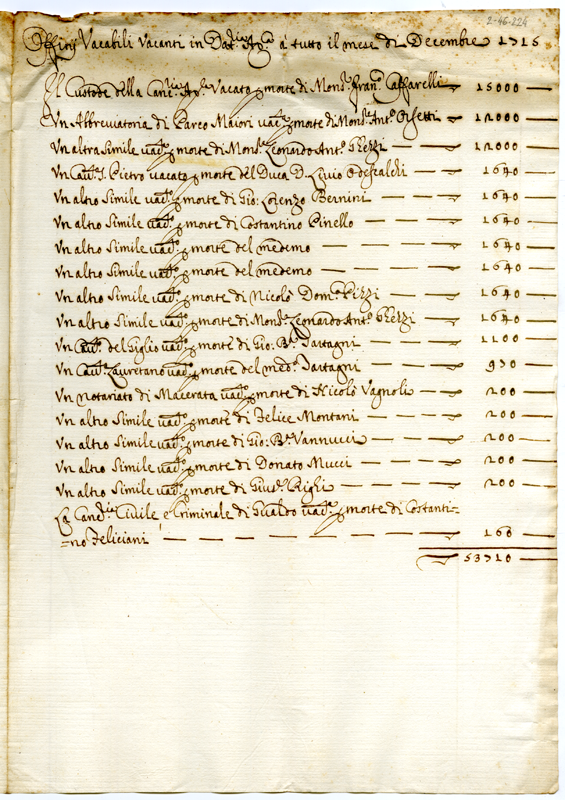 2-46-224
Offitij Vacabili Vacanti in Dat.ria Ap.ca à tutto il mese di Decembre 1715
Il Custode della Canc.ria Ap.ca Vacato p morte di Mons.r Fran.co Caffarelli — 15000 —
Un Abbreviatoria di Parco Maiori vac.to p morte di Mons.r Ant.o — 12000 —
Un altra Simile vac.ta p morte di Mons.r Leonardo Ant.o — 12000 —
Un Cau.to S. Pietro vacato p morte del Duca D. Livio Odescalchi — 1640 —
Un altro Simile vac.to p morte di Gio: Lorenzo Bernini — 1640 —
Un altro Simile vac.to p morte di Costantino Pinello — 1640 —
Un altro Simile vac.to p morte del medemo — — — 1640 —
Un altro Simile vac.to p morte del medemo — — — 1640 —
Un altro Simile vac.to p morte di Nicolò Dom.co Pizzi — 1640 —
Un altro Simile vac.to p morte di Mons.r Leonardo Ant.o — 1640 —
Un Cau.to del Giglio vac.to p morte di Gio: B.a Tartagni — 1100 —
Un Cau.to Lauretano vac.to p morte del med.o Tartagni — 930 —
Un notariato di Macerata vac.to p morte di Nicolò Vagnoli — 200 —
Un altro Simile vac.to p morte di Felice Montani — — 200 —
Un altro Simile vac.to p morte di Gio: B.a Vannucci — — 200 —
Un altro Simile vac.to p morte di Donato Mucci — — 200 —
Un altro Simile vac.to p morte di Gius.e Righi — — 200 —
La Canc.ria Civile e Criminale di Gualdo vac.ta p morte di Costanti=
=no Feliciani — — — — — — 160 —
53710 —